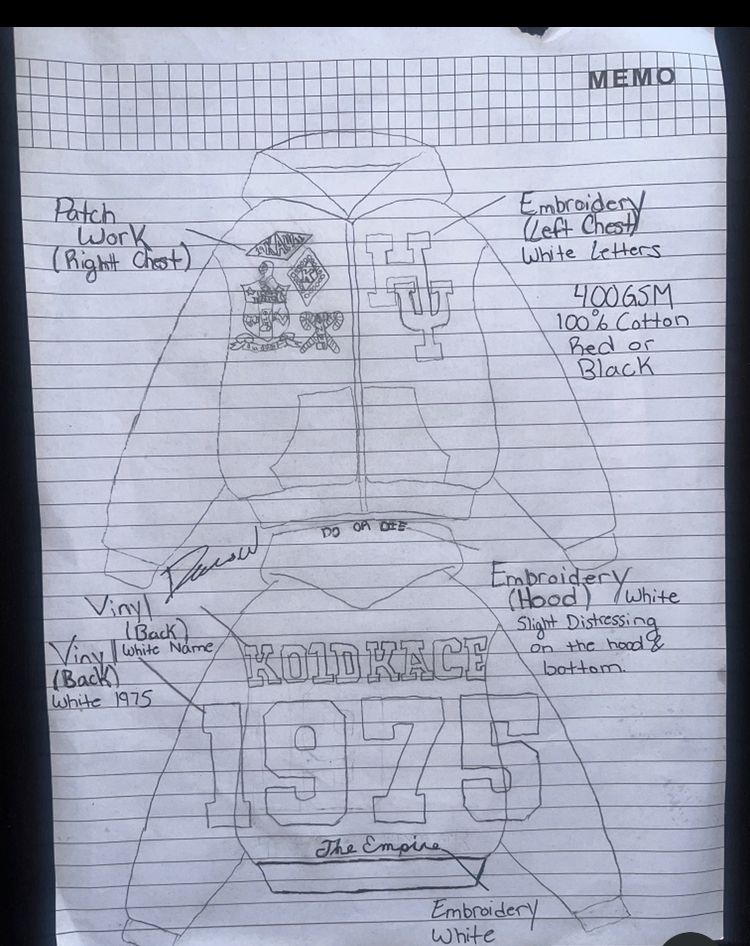 MEMO
Patch
Work
(Right Chest)
Embroidery
(Left Chest)
White Letters
400GSM
100% Cotton
Red or
Black
KAΨ
H
IU
DO OR DIE
Embroidery
(Hood) White
Slight Distressing
on the hood &
bottom.
Vinyl
(Back)
White Name
Vinyl
(Back)
White 1975
KO1D KACE
1975
The Empire
Embroidery
White